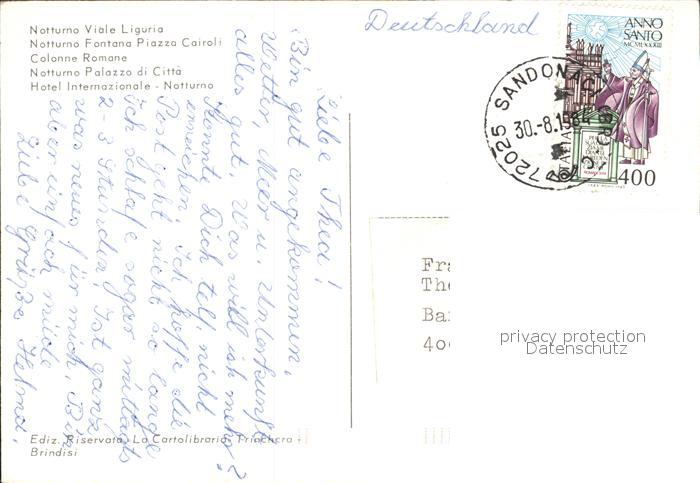 Notturno Viale Liguria
Notturno Fontana Piazza Cairoli
Colonne Romane
Notturno Palazzo di Città
Hotel Internazionale - Notturno
Deutschland
ANNO
SANTO
MCMLXXXIII
400
72025 SANDONACI (BR)
30.-8.1984
Liebe Thea!
Bin gut angekommen,
Wetter, Meer u. Unterkunft
alles gut, Was will ich mehr?
Konnte Dich telf. nicht
erreichen. Ich hoffe die
Post geht nicht so lange
ich schlafe sogar mittags
2-3 Stunden, Ist ganz
was neues für mich, Bin
aber einfach müde
Liebe Grüße Helma.
Fra
The
Ba
40
privacy protection
Datenschutz
Ediz. Riservata La Cartolibraria Trinchera -
Brindisi